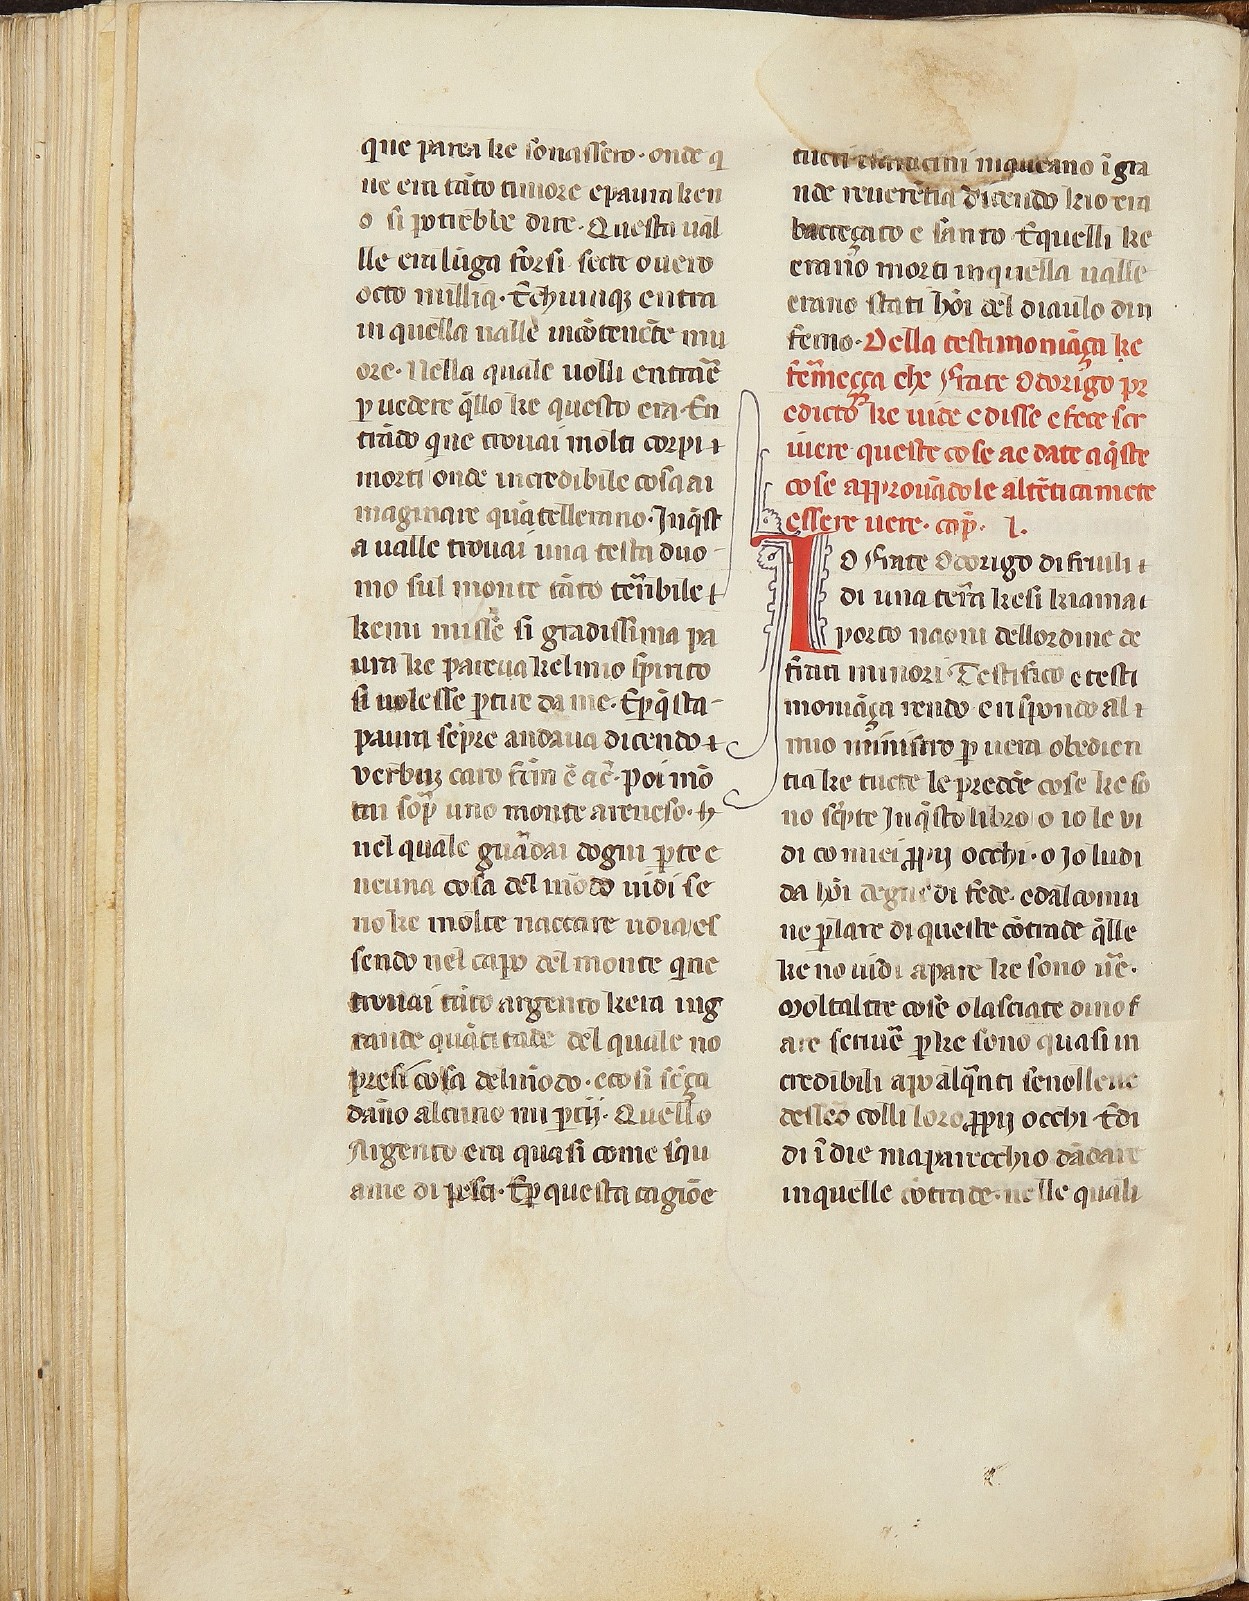 que parea ke sonassero · onde q
ue era tāto timore epaura ken
o si potrebbe dire · Questa ual
lle era lūga forsi sette ouero
octo millia · Echiunqꝫ entra
in quella ualle incōtenēte mu
ore · Nella quale uolli entrar̄e
ꝑ uedere q̄llo ke questo era · En
trādo que trouai molti corpi ⁊
morti onde incredibile cosa ai
maginare quāte llerano · Inq̄st
a ualle trouai una testa duo
mo sul monte tāto terribile ⁊
kemi misse si grādissima pa
ura ke pareua kel mio spirito
si uolesse ꝑtire da me · Eꝑ q̄sta
paura sēpre andaua dicendo ⁊
verbuꝫ caro fc̄m ē ⁊c̄ · poi mō
tai sopͣ uno monte areneso ·
nel quale guādai dogni ꝑte e
neuna cosa del mōdo uidi se
no ke molte naccare udia es
sendo nel capo del monte que
trouai tāto argento kera ing
rande quātitade del quale no
presi cosa del mōdo · ecosi sēça
dāno alcuno mi ꝑtij · Quello
Argento era quasi come squ
ame di pesci · Eꝑ questa cagiōe
tucti esaracini miaueano ī gra
nde reuerētia dicendo kio era
bacteçato e santo Equelli ke
erano morti inquella ualle
erano stati hōi del diauolo din
ferno · Della testimoniāça ke
fermeçça che frate Odorigo pr
edicto ke uide edisse e fece scr
iuere queste cose ac date a q̄ste
cose approuādole altētica mēte
essere uere · cap̄ · l ·
IO frate Odorigo di friuli ⁊
di una terra kesi kiama ⁊
porto naoni dellordine de
frati minori · Testifico e testi
moniāça rendo e rispondo al ⁊
mio ministro ꝑ uera obedien
tia ke tucte le predcē cose ke so
no scͥpte Inq̄sto libro o io le vi
di co miei ꝓpij occhi · o Jo ludi
da hōi degni di fede · e dal comu
ne ꝑlare di queste cōtrade q̄lle
ke no uidi apare ke sono ue͞ ·
Molt altre cose o lasciate di no f
are scriue͞ ꝑ ke sono quasi in
credibili apo alqͣnti senolle ue
dessero colli loro ꝓpij occhi · Edi
di ī die maparecchio dādare
inquelle cōtrade · nelle quali